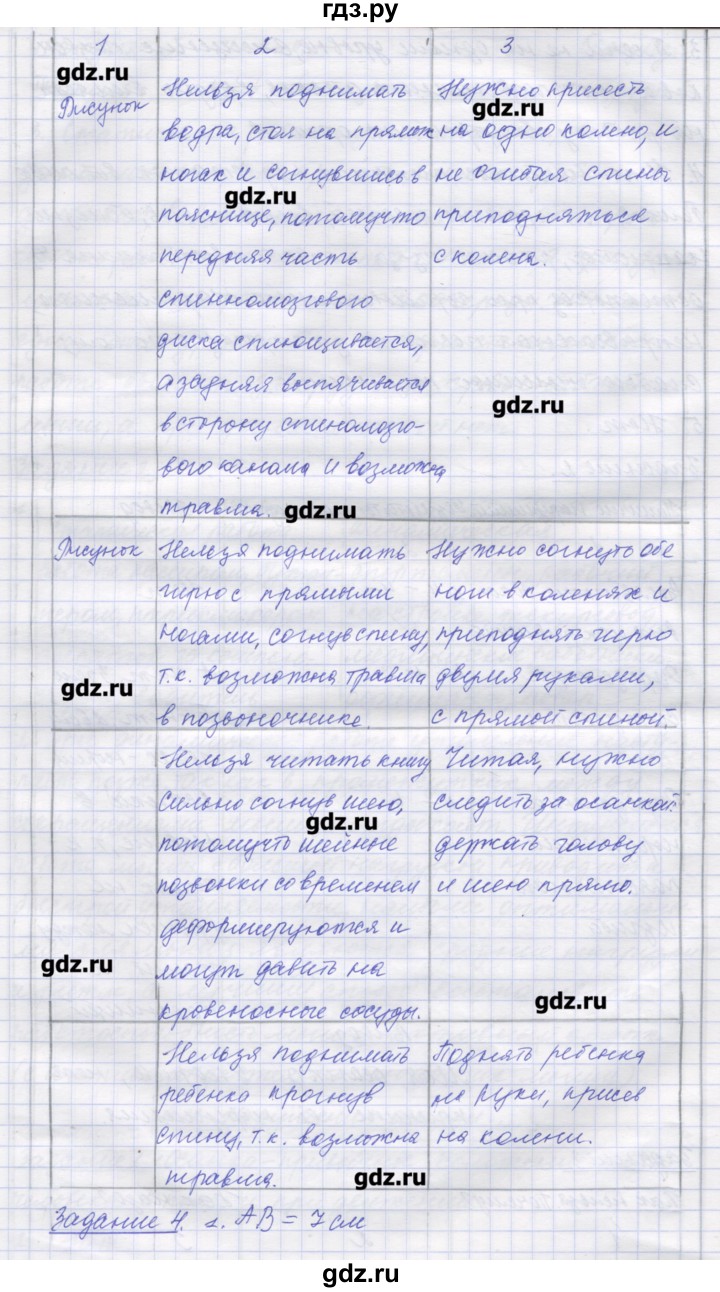 гдз.ру
1 2 3
gdz.ru
Рисунок
Нельзя поднимать
ведра, стоя на прямых
ногах и согнувшись в
пояснице, потомучто
передняя часть
спинномозгового
диска сплющивается,
а задняя выпячивается
в сторону спиномозго-
вого канала и возможна
травма.
Нужно присесть
на одно колено, и
не сгибая спины
приподняться
с колена.
gdz.ru
gdz.ru
gdz.ru
gdz.ru
Рисунок
Нельзя поднимать
гирю с прямыми
ногами, согнув спину,
т.к. возможна травма
в позвоночнике.
Нужно согнуть обе
ноги в коленях и
приподнять гирю
двумя руками,
с прямой спиной.
gdz.ru
Нельзя читать книгу
сильно согнув шею,
потомучто шейные
позвонки со временем
деформируются и
могут давить на
кровеносные сосуды.
Читая, нужно
следить за осанкой:
держать голову
и шею прямо.
gdz.ru
gdz.ru
gdz.ru
Нельзя поднимать
ребенка прогнув
спину, т.к. возможна
травма.
Поднять ребенка
на руки, присев
на колени.
gdz.ru
Задание 4. 2. AB = 7 см
gdz.ru